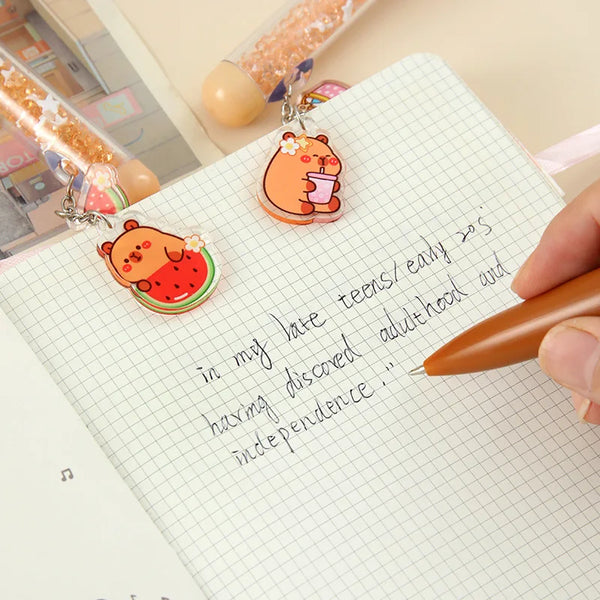 in my late teens/early 20s'
having discored adulthood and
independence."